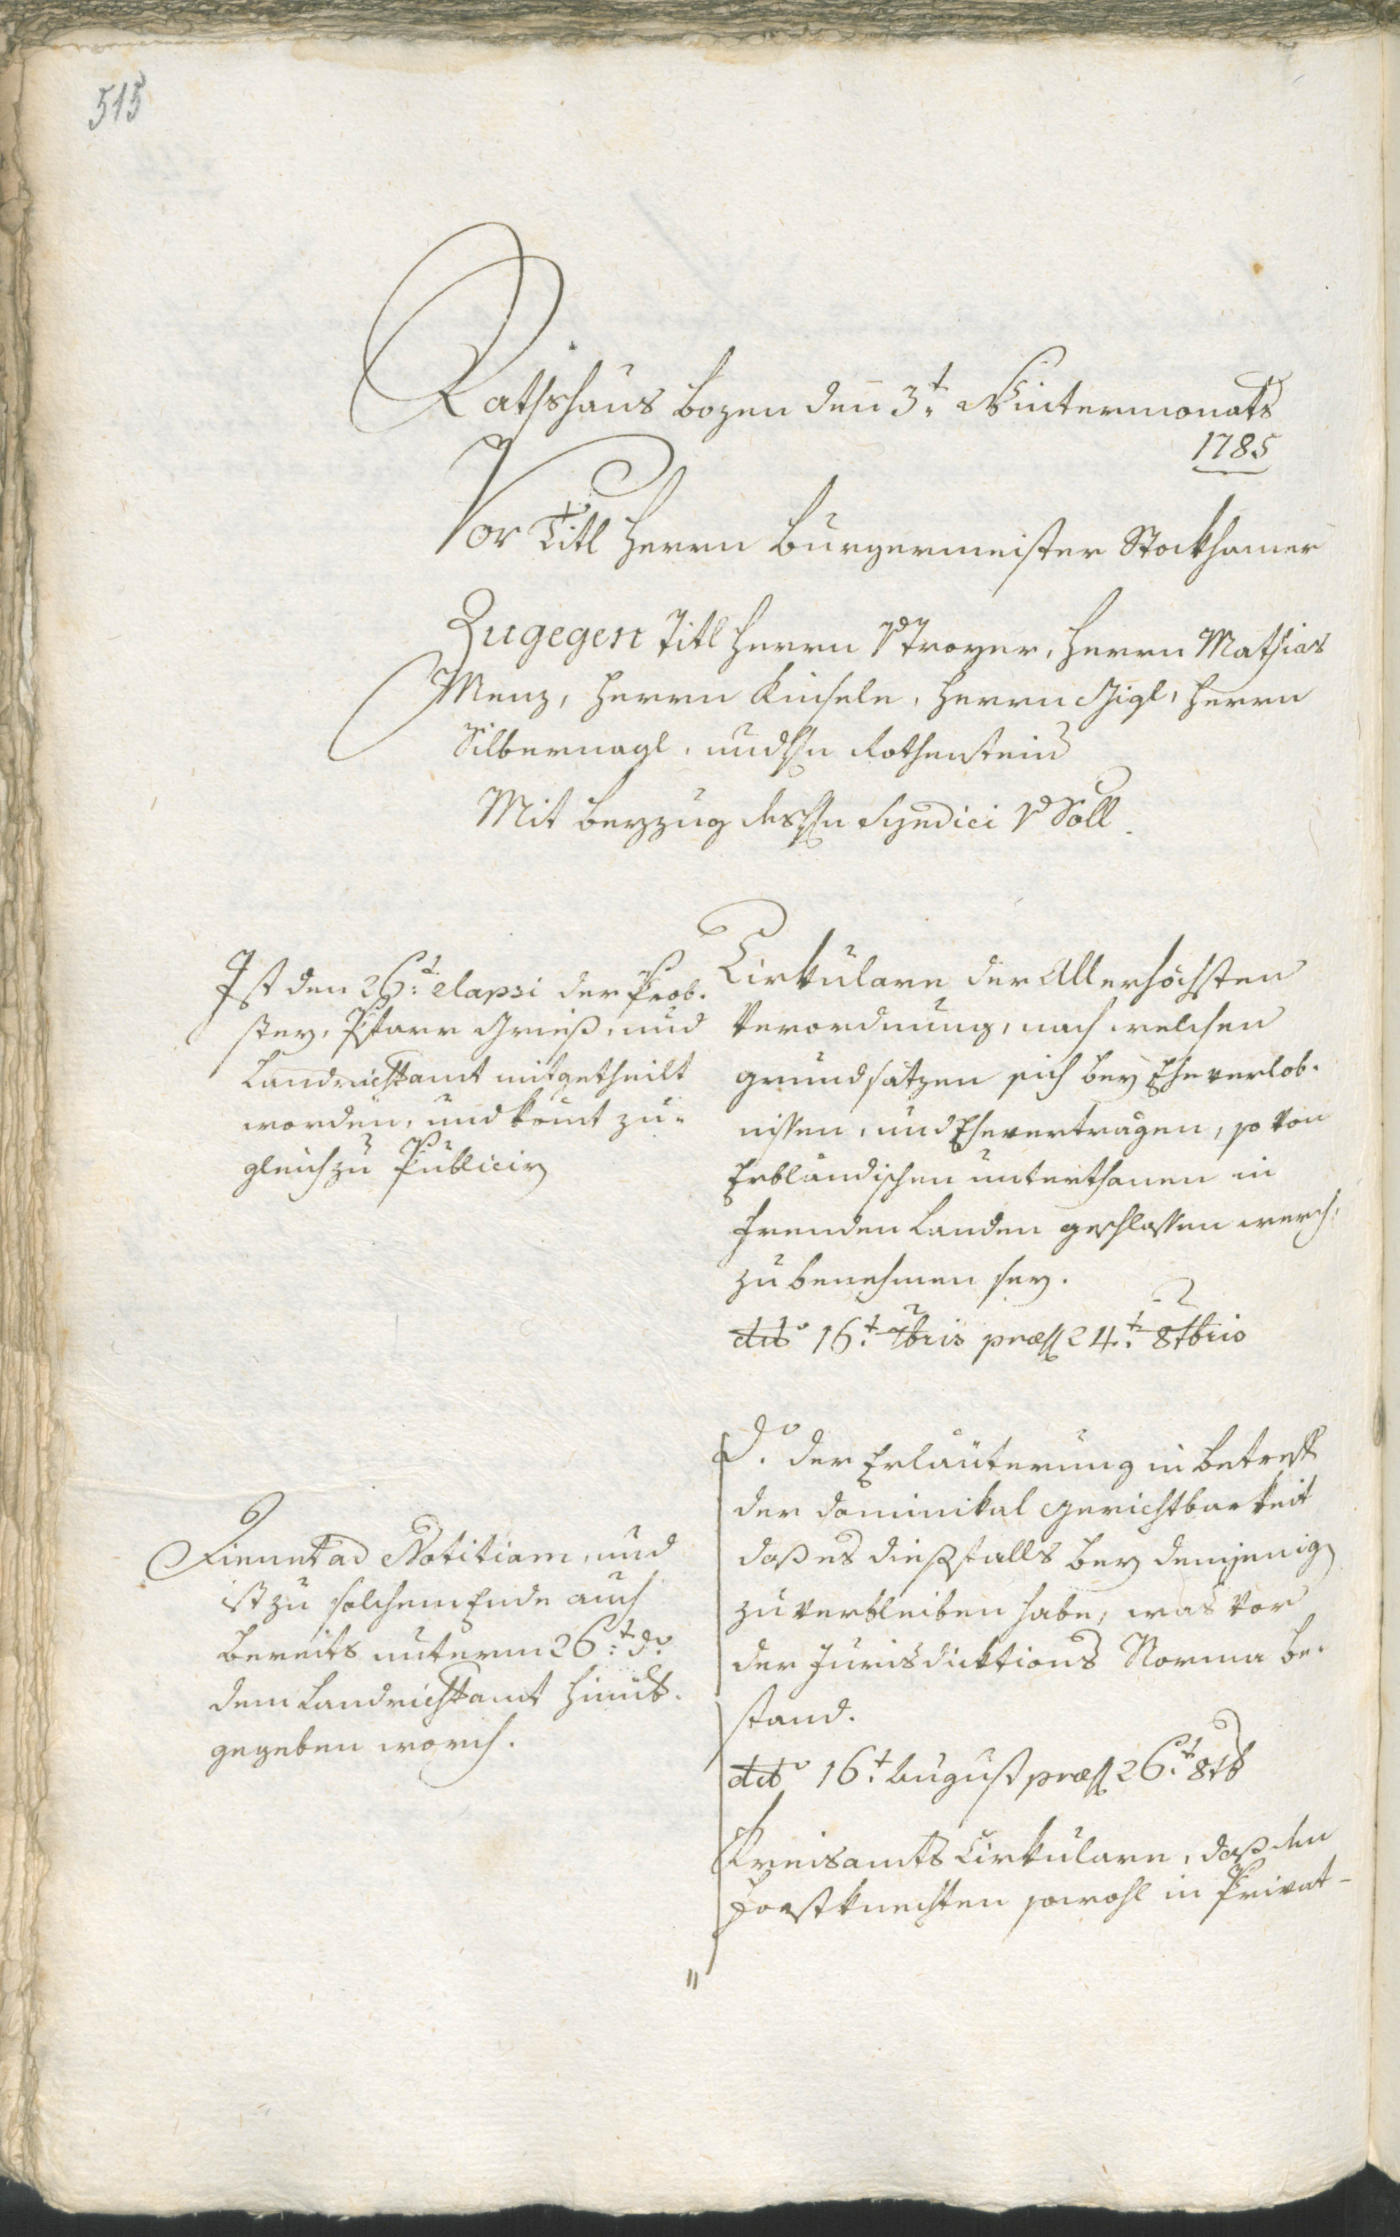 515
Rathshaus Bozen den 3.t Wintermonats
1785
Vor Titl Herrn Burgermeister Stockhamer
Zugegen Titl Herrn v Troyer, Herrn Mathias
Menz, Herrn Kinsele, Herrn Gigl, Herrn
Silbernagl, und Hn Rothenstein
Mit Beyzug des Hn Syndici v Söll.
Ist den 26.t elapsi der Prob-
stey, Pfarr Grieß, und
Landrichteramt mitgetheilt
worden, und komt zu-
gleich zu Publicirn
Cirkulare der Allerhöchsten
Verordnung, nach welchen
grundsätzen sich bey Eheverlob-
nissen, und Eheverträgen, so von
Erbländischen unterthanen in
fremden Landen geschlossen werdn,
zu benehmen sey.
dto 16.t 7bris præs 24.t 8tbris
do. der Erläuterung in betreff
der dominikal gerichtbarkeit
daß es diesfalls bey demjenign
zu verbleiben habe, was vor
der Jurisdicktions Norma be-
stand.
dto 16.t August præs 26.t 8tb
Fiennt ad Notitiam, und
ist zu solchem Ende auch
bereits unterm 26.t do
dem Landrichteramt hinüb-
gegeben wordn.
Kreisamts Cirkulare, daß den
Forstknechten sowohl in Privat-
"